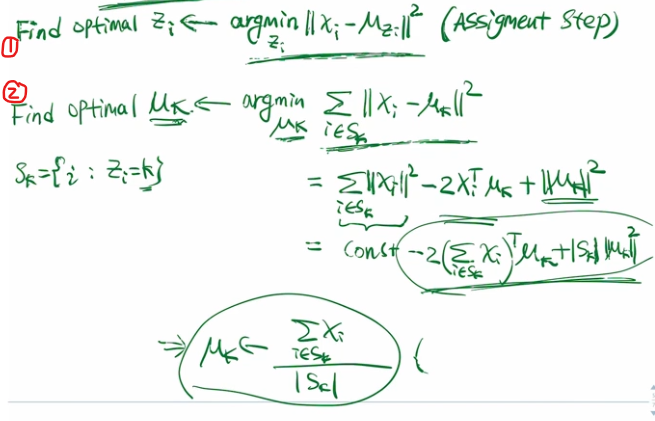 ① Find optimal Zᵢ ← argmin_{Zᵢ} ||Xᵢ - μ_{Zᵢ}||² (Assigment Step)
② Find optimal μ_K ← argmin_{μ_K} Σ_{i∈S_K} ||Xᵢ - μ_K||²
S_K = {i : Zᵢ = K} = Σ_{i∈S_K} ||Xᵢ||² - 2Xᵢᵀ μ_K + ||μ_K||²
= const - 2(Σ_{i∈S_K} Xᵢ)ᵀ μ_K + |S_K| ||μ_K||²
⇒ μ_K ← Σ_{i∈S_K} Xᵢ / |S_K| (